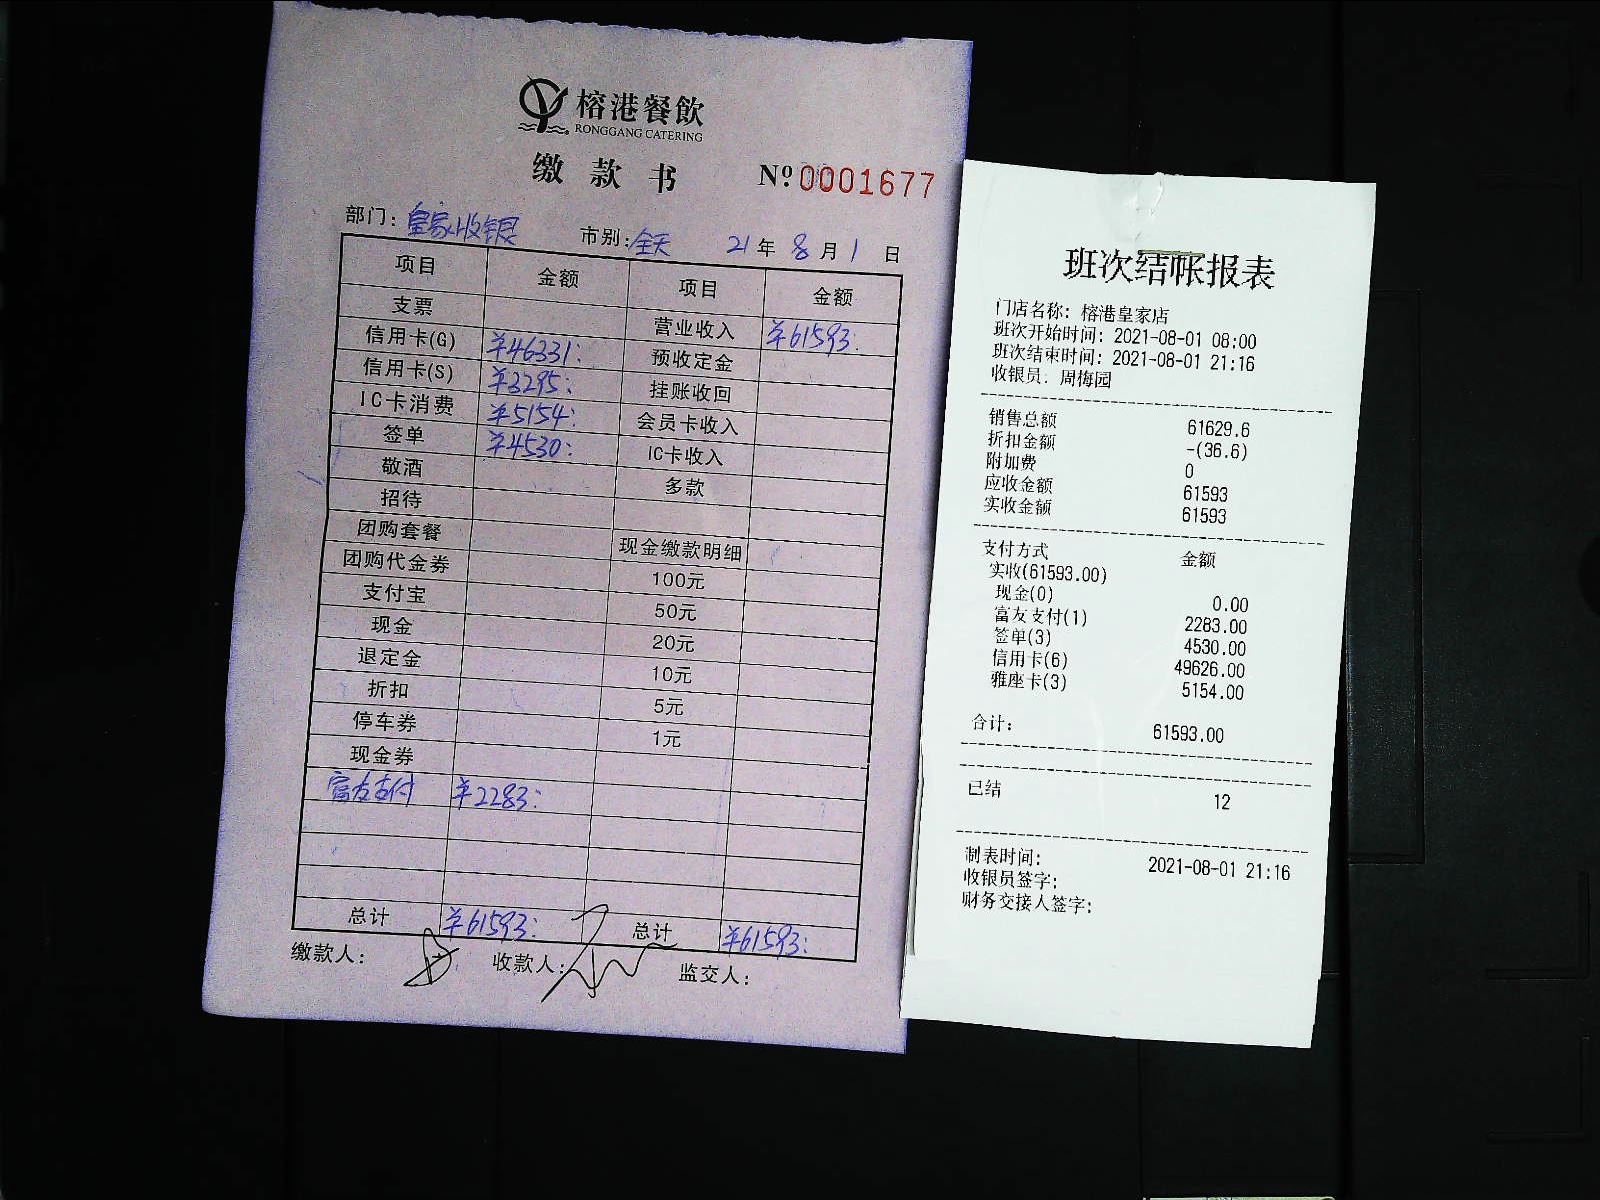 榕港餐飲
RONGGANG CATERING
缴款书 Nº 0001677
部门: 皇家收银 市别: 全天 21年 8月 1日
项目 金额 项目 金额
支票 营业收入 ¥61593:
信用卡(G) ¥46331: 预收定金
信用卡(S) ¥3295: 挂账收回
IC卡消费 ¥5154: 会员卡收入
签单 ¥4530: IC卡收入
敬酒 多款
招待
团购套餐 现金缴款明细
团购代金券 100元
支付宝 50元
现金 20元
退定金 10元
折扣 5元
停车券 1元
现金券
富友支付 ¥2283:
总计 ¥61593: 总计 ¥61593:
缴款人: 收款人: 监交人:
班次结帐报表
门店名称: 榕港皇家店
班次开始时间: 2021-08-01 08:00
班次结束时间: 2021-08-01 21:16
收银员: 周梅园
销售总额 61629.6
折扣金额 -(36.6)
附加费 0
应收金额 61593
实收金额 61593
支付方式 金额
实收(61593.00)
现金(0) 0.00
富友支付(1) 2283.00
签单(3) 4530.00
信用卡(6) 49626.00
雅座卡(3) 5154.00
合计: 61593.00
已结 12
制表时间: 2021-08-01 21:16
收银员签字:
财务交接人签字: